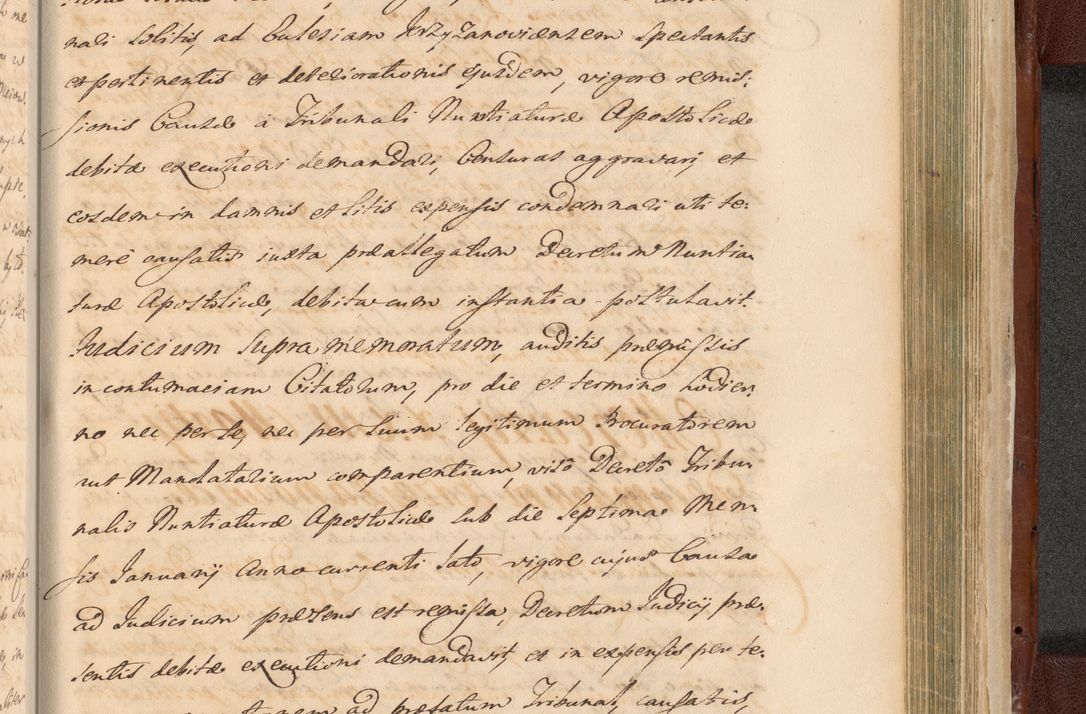 nali solitis, ad Ecclesiam Krzyżanoviensem spectantis
et pertinentis et deteriorationis ejusdem, vigore remis:
sionis Causæ a Tribunali Nuntiaturæ Apostolicæ
debitæ executioni demandari, Censuras aggravari et
eosdem in damnis et Litis expensis condemnari uti te:
merè causatis iuxta præallegatum Decretum Nuntia:
turæ Apostolicæ, debita cum instantia postulavit.
Judicium supra memoratum, auditis præmissis
in contumaciam Citatorum, pro die et termino hodier:
no nec per se, nec per suum legitimum Procuratorem
aut Mandatarium comparentium, viso Decreto Tribu:
nalis Nuntiaturæ Apostolicæ sub die septima Men:
sis Januarij Anno currenti lato, vigore cujus Causa
ad Judicium præsens est remissa, Decretum Judicij præ:
sentis debitæ executioni demandavit, et in expensis per te:
ad præfatum Tribunal, causatis,